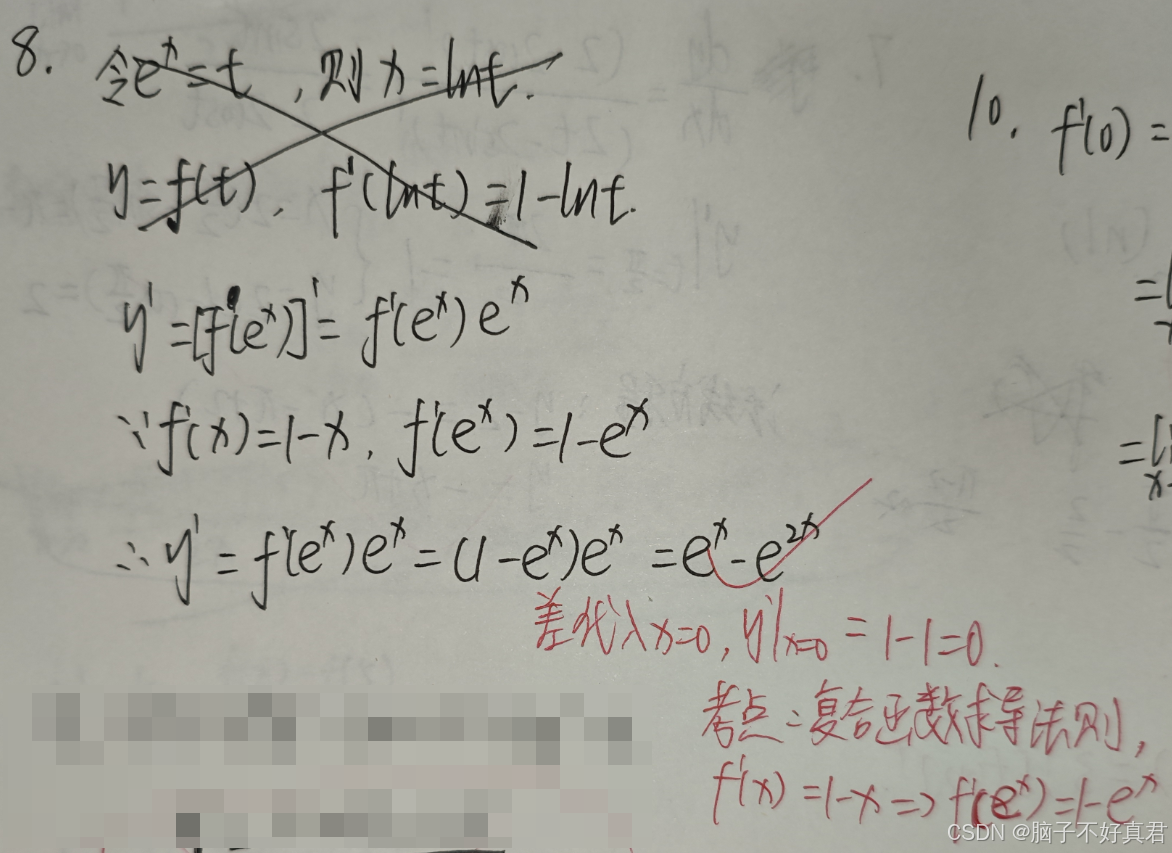 8. 令e^x=t,则x=lnt.
y=f(t), f'(lnt)=1-lnt.
y'=[f(e^x)]'=f'(e^x)e^x
∵f'(x)=1-x, f'(e^x)=1-e^x
∴y'=f'(e^x)e^x=(1-e^x)e^x=e^x-e^{2x}
差代入x=0,y'|x=0=1-1=0.
考点:复合函数求导法则,
f'(x)=1-x=>f'(e^x)=1-e^x
10. f'(0)=
=
=
CSDN @脑子不好真君